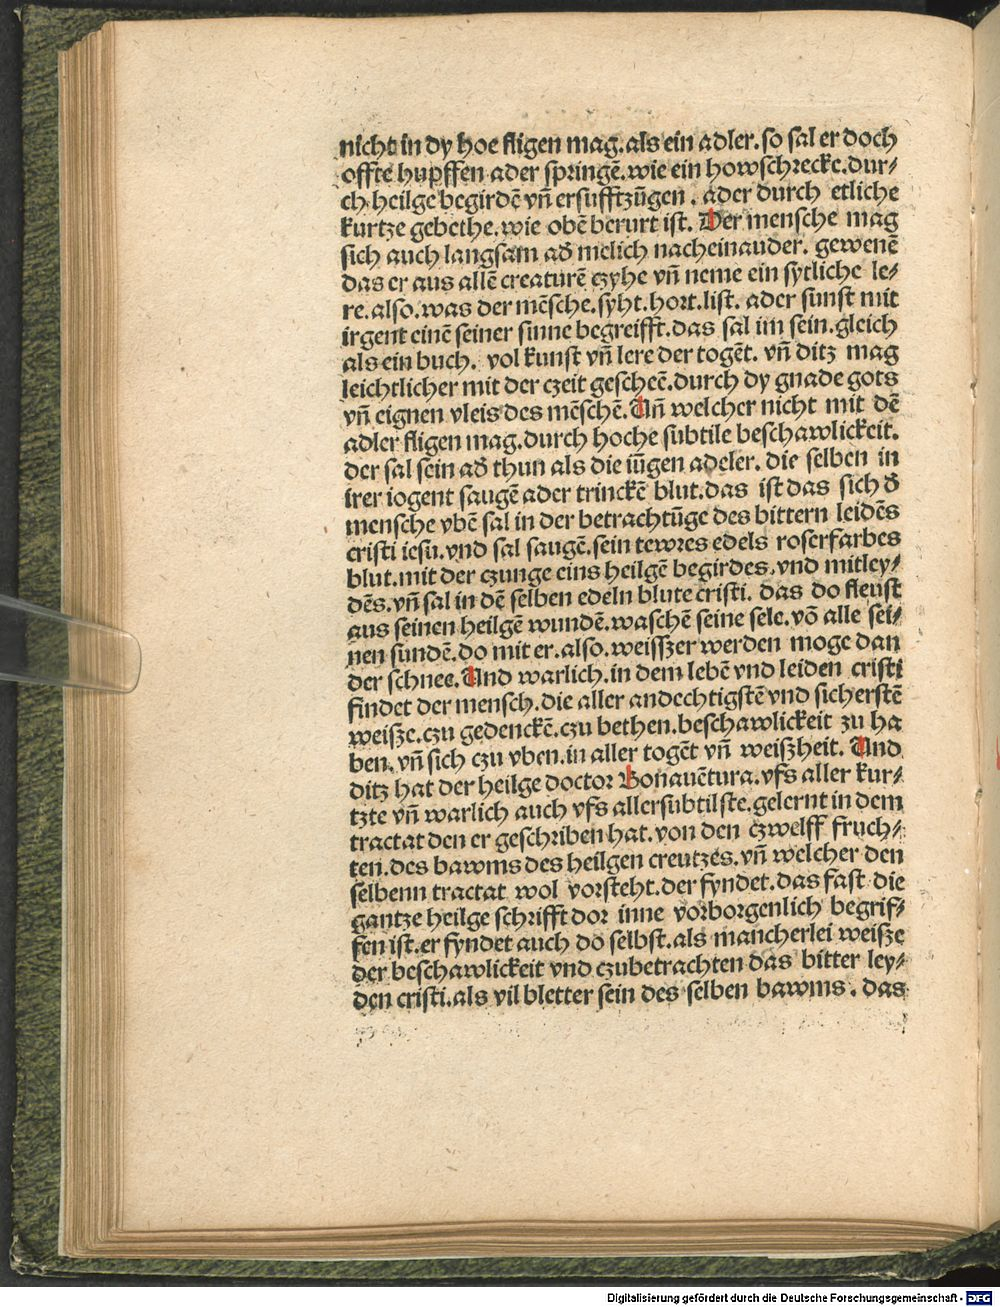 nicht in dy hoe fligen mag. als ein adler. so sal er doch
offte hupffen ader springē. wie ein howschrecke. dur⸗
ch heilge begirdē vñ ersufftzūgen. ader durch etliche
kurtze gebethe. wie obē berurt ist. Der mensche mag
sich auch langsam ad̄ melich nacheinauder. gewenē
das er aus allē creaturē czyhe vñ neme ein sytliche le⸗
re. also. was der mēsche. syht. hort. list. ader sunst mit
irgent einē seiner sinne begreifft. das sal im sein. gleich
als ein buch. vol kunst vñ lere der togēt. vñ ditz mag
leichtlicher mit der czeit gescheē. durch dy gnade gots
vñ eignen vleis des mēschē. Uñ welcher nicht mit dē
adler fligen mag. durch hoche subtile beschawlickeit.
der sal sein ad̄ thun als die iūgen adeler. die selben in
irer iogent saugē ader trinckē blut. das ist das sich d̄
mensche vbē sal in der betrachtūge des bittern leidēs
cristi iesu. vnd sal saugē. sein tewres edels roserfarbes
blut. mit der czunge eins heilgē begirdes. vnd mitley⸗
dēs. vñ sal in dē selben edeln blute cristi. das do fleust
aus seinen heilgē wundē. waschē seine sele. vō alle sei⸗
nen sundē. do mit er. also. weisszer werden moge dan
der schnee. Und warlich. in dem lebē vnd leiden cristi
findet der mensch. die aller andechtigstē vnd sicherstē
weisze. czu gedenckē. czu bethen. beschawlickeit zu ha
ben. vñ sich czu vben. in aller togēt vñ weiszheit. Und
ditz hat der heilge doctor Bonauētura. vfs aller kur⸗
tzte vñ warlich auch vfs allersubtilste. gelernt in dem
tractat den er geschriben hat. von den czwelff fruch⸗
ten. des bawms des heilgen creutzes. vñ welcher den
selbenn tractat wol vorsteht. der fyndet. das fast die
gantze heilge schrifft dor inne vorborgenlich begrif⸗
fen ist. er fyndet auch do selbst. als mancherlei weisze
der beschawlickeit vnd czubetrachten das bitter ley⸗
den cristi. als vil bletter sein des selben bawms. das
Digitalisierung gefördert durch die Deutsche Forschungsgemeinschaft - DFG